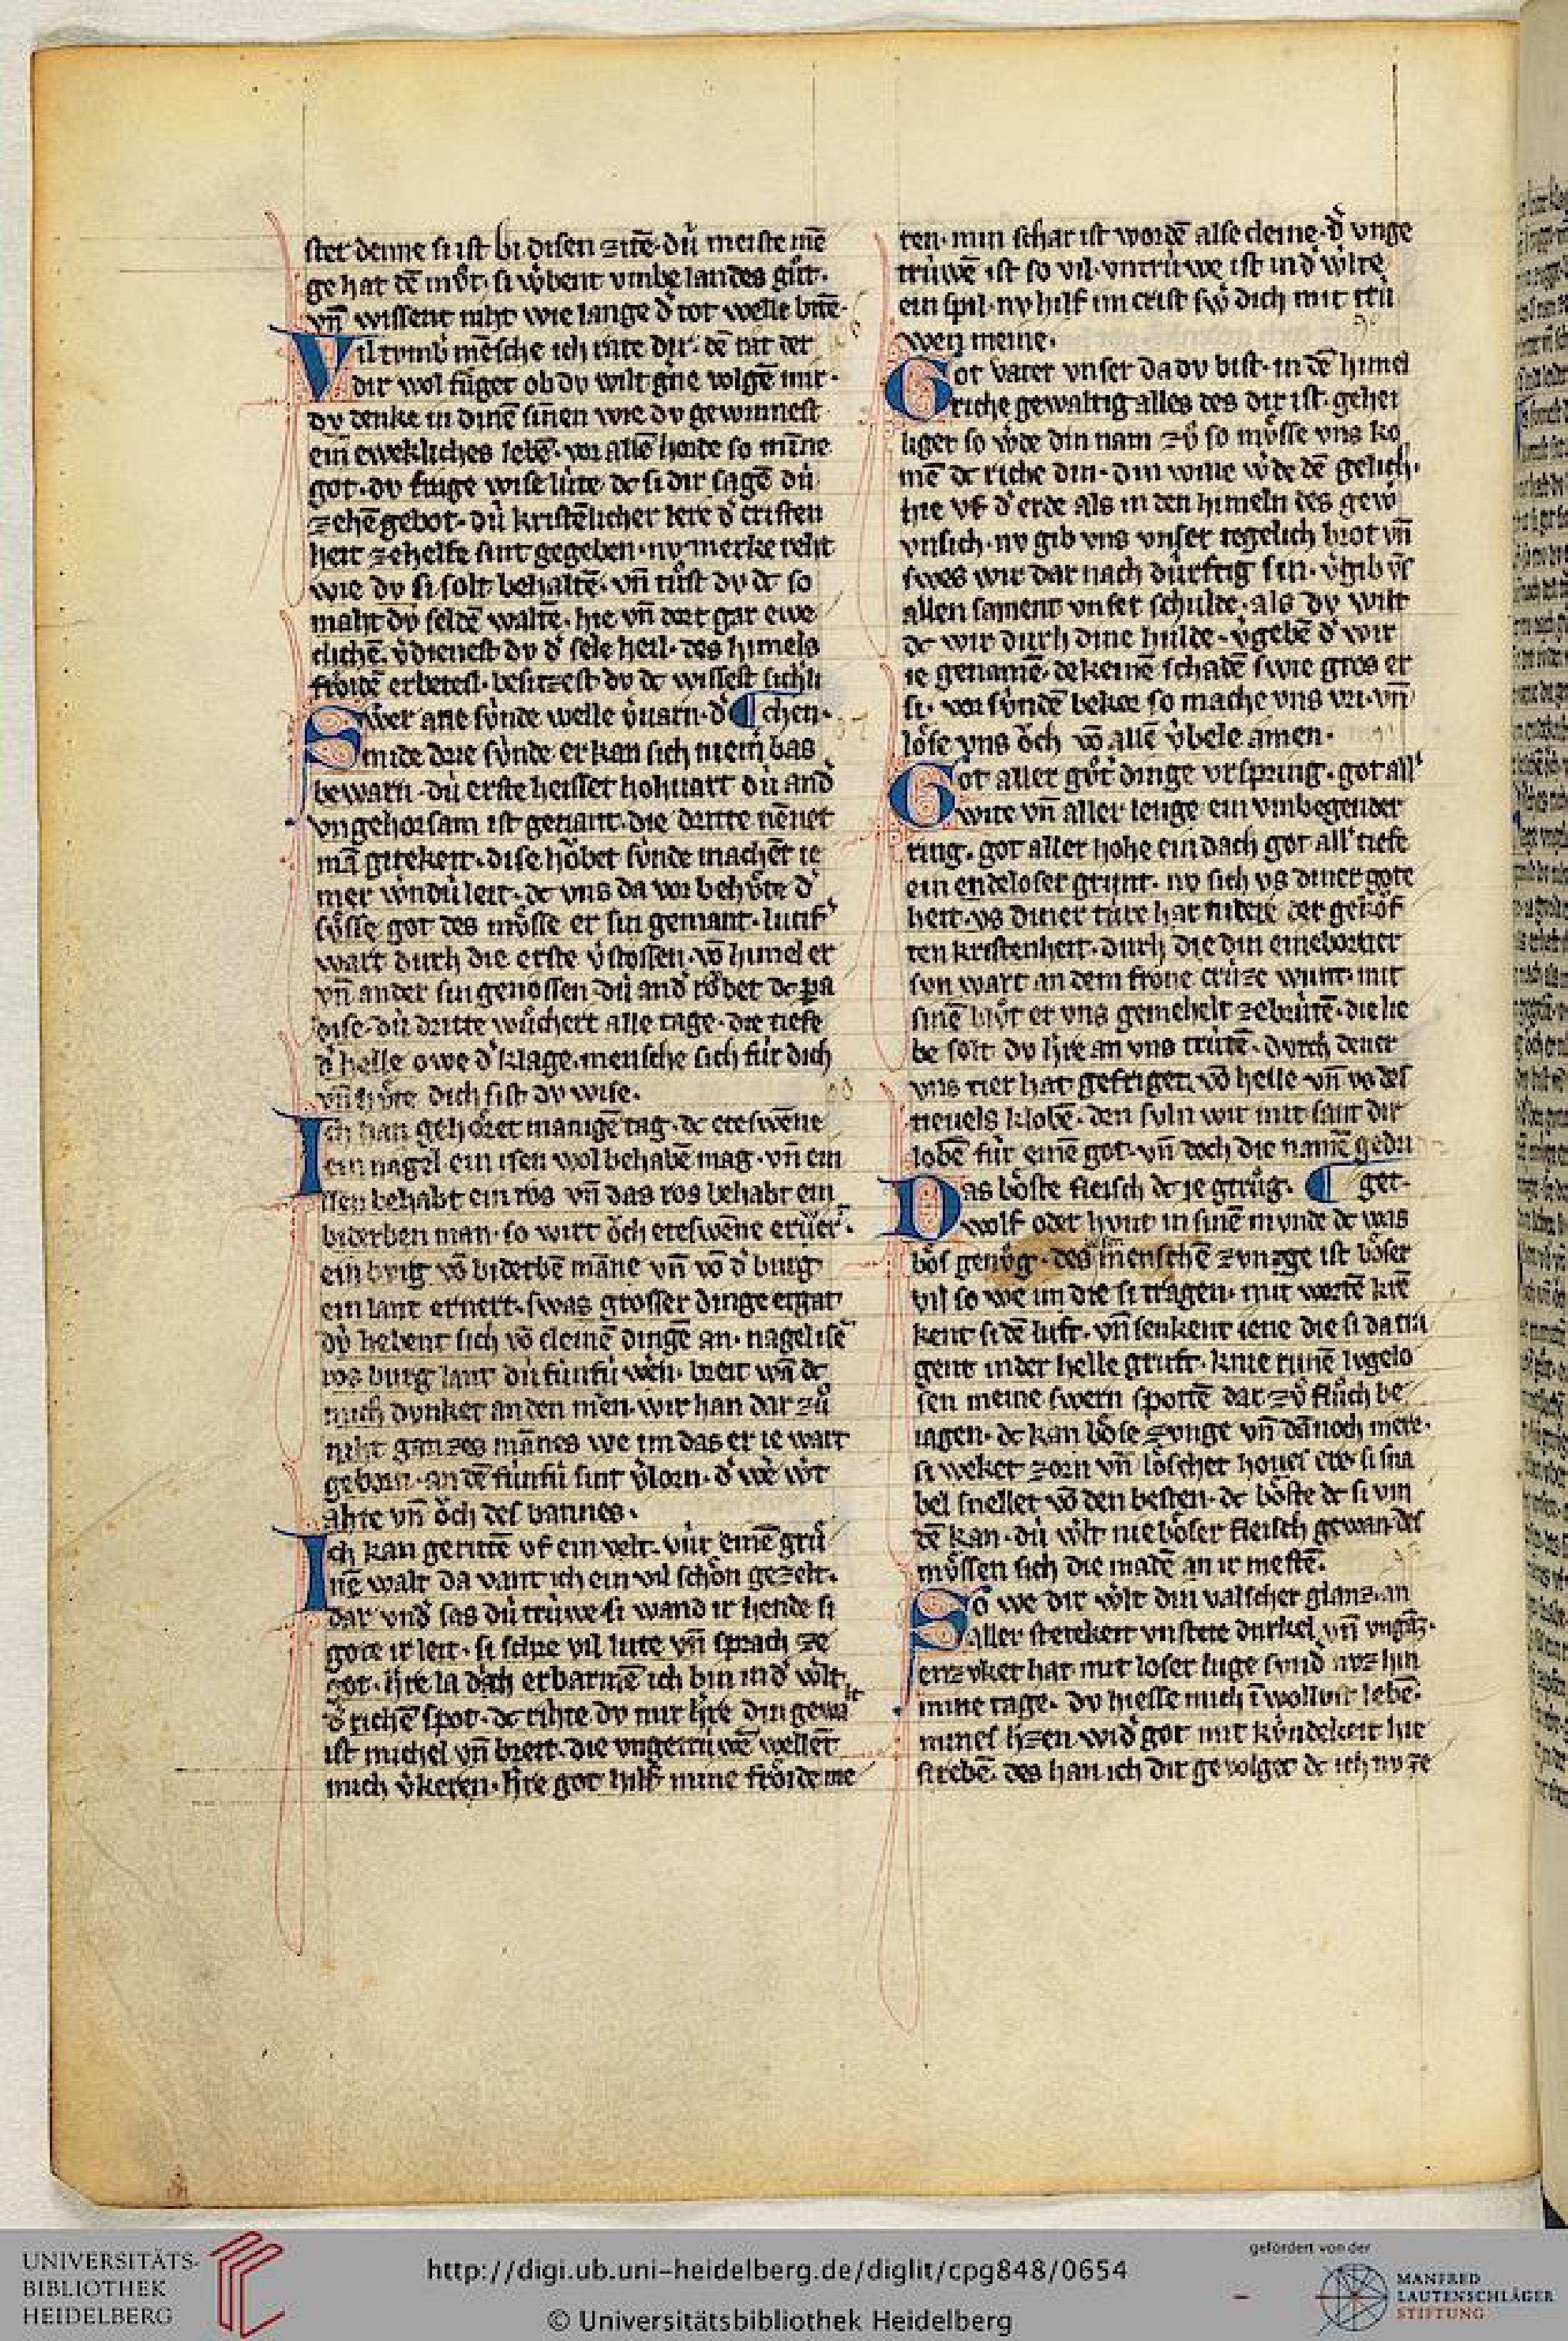 ster denne si ist bi disen zitē· dv̍ meiste mē
ge hat dē mv̊t· si wͤbent vmbe landes gůt·
vn̄ wissent niht wie lange d̾ tot welle bitē·
Vil tvmb mēsche ich rate dir· dē rat der
dir wol fůget ob dv wilt gn̄e volgē mir·
dv denke in dinē sinnen wie dv gewinnest
ein ewekliches lebē· vor allē horde so minne
got· dv frage wise lúte dc si dir sagē dú
zehē gebot· dú kristēlicher lere d̾ cristen
heit zehelfe sint gegeben· nv merke reht
wie dv si solt behaltē· vn̄ tůst dv dc so
maht dv seldē waltē· hie vn̄ dort gar ewe
clichē· v̾dienest dv d̾ sele heil· des himels
frôidē erbeteil· besitzest dv dc wissest sichli
Swer ane sv́nde welle v̾varn· d̾ ¶ chen·
mide drie sv́nde er kan sich niem̄ bas
bewarn· dú erste heisset hohvart dú and̾
vngehorsam ist genant· die dritte nēnet
mā gitekeit· dise hôbet sv́nde machēt ie
mer wͤndú leit· dc vns da vor behv̊te d̾
sv̊sse got des mv̊sse er sin gemant· lucif̾
wart durch die erste v̾stossen· vō himel er
vn̄ ander sin genossen dú and̾ rôbet dc pa
dise· dú dritte wůchert alle tage· die tiefe
d̾ helle owe d̾ klage· mensche sich fúr dich
vn̄ hv̊te dich sist dv wise·
Ich han gehôret manigē tag· dc eteswēne
ein nagel ein isen wol behabē mag· vn̄ ein
isen behabt ein ros vn̄ das ros behabt ein
biderben man· so wirt ôch eteswēne ernert·
ein bvrg vō biderbē māne vn̄ vō d̾ burg
ein lant ernert· swas grosser dinge ergat
dv́ hebent sich vō cleinē dingē an· nagel isē
ros burg lant dú fúnfú wen· breit wā dc
mich dvnket an den men· wir han dar zů
niht ganzes mānes we im das er ie wart
geborn· an dē fúnfú sint v̾lorn· d̾ we wͤt
ahte vn̄ ôch des bannes·
Ich kan geritē vf ein velt· vúr einē grů
nē walt da vant ich ein vil schôn gezelt·
dar vnd̾ sas dú trúwe si wand ir hende si
gote ir leit· si schre vil lute vn̄ sprach ze
got· hr̄e la dich erbarmē ich bin in d̾ wͤlt
d̾ richē spot· dc rihte dv mir hr̄e din gewalt
ist michel vn̄ breit· die vngetrúwē wellēt
mich v̾keren· hr̄e got hilf mine frôide me
ren· min schar ist wordē alse cleine· d̾ vnge
trúwē ist so vil· vntrúwe ist in d̾ wͤlte
ein spil· nv hilf im crist sw̾ dich mit trú
wen meine·
Got vater vnser da dv bist· in dē himel
riche gewaltig alles des dir ist· gehei
liget so wͤde din nam zů so mv̊sse vns ko
mē dc riche din· din wille wͤde dē gelich·
hie vf d̾ erde als in den himeln des gew̾
vnsich· nv gib vns vnser tegelich brot vn̄
swes wir dar nach dúrftig sin· v̾gib v̄s
allen sament vnser schulde· als dv wilt
dc wir durch dine hulde· v̾gebē d̾ wir
ie genamē· dekeinē schadē swie gros er
si· vor sv́ndē bekor so mache vns vri· vn̄
lôse vns ôch vō allē v́bele amen·
Got aller gv̊t̾ dinge vrspring· got all̾
wite vn̄ aller lenge ein vmbegender
ring· got aller hohe ein dach got all̾ tiefe
ein endeloser grvnt· nv sich vs diner gote
heit· vs diner túre har nidere der getôf
ten kristenheit· durch die din eineborner
svn wart an dem frone crúze wunt· mit
sinē blv̊t er vns gemehelt ze brútē· die lie
be solt dv hr̄e an vns trútē· dvrch dener
vns tier hat gefriget· vō helle vn̄ vs des
tieuels klobē· den svln wir mit samt dir
lobē fúr einē got· vn̄ doch die namē gedri
Das bôste fleisch dc ie getrůg· ¶ get·
wolf oder hvnt in sinē mvnde dc was
bôs genůg· des menschē zvnge ist bôser
vil so we im die si tragen· mit wortē kre
kent si dē luft· vn̄ senkent iene die si da tra
gent in der helle gruft· knie runē lvgelo
sen meine swern spottē dar zů flůch be
iagen· dc kan bôse zvnge vn̄ dānoch mere·
si weket zorn vn̄ lôschet houes ere· si sna
bel snellet vō den besten· dc bôste dc si vin
dē kan· dú wͤlt nie bôser fleisch gewan des
mv̊ssen sich die madē an ir mestē·
So we dir wͤlt din valscher glanz· an
aller stetekeit vnstete durkel vn̄ vngāz·
enzvket hat mit loser luge svnd̾ nvz hin
mine tage· dv hiesse mich ī wollust lebē·
mines h̾zen wid̾ got mit kv́ndekeit hie
strebē· des han ich dir gevolget dc ich nv ze
UNIVERSITÄTS-
BIBLIOTHEK
HEIDELBERG
http://digi.ub.uni-heidelberg.de/diglit/cpg848/0654
© Universitätsbibliothek Heidelberg
gefördert von der
MANFRED
LAUTENSCHLÄGER
STIFTUNG